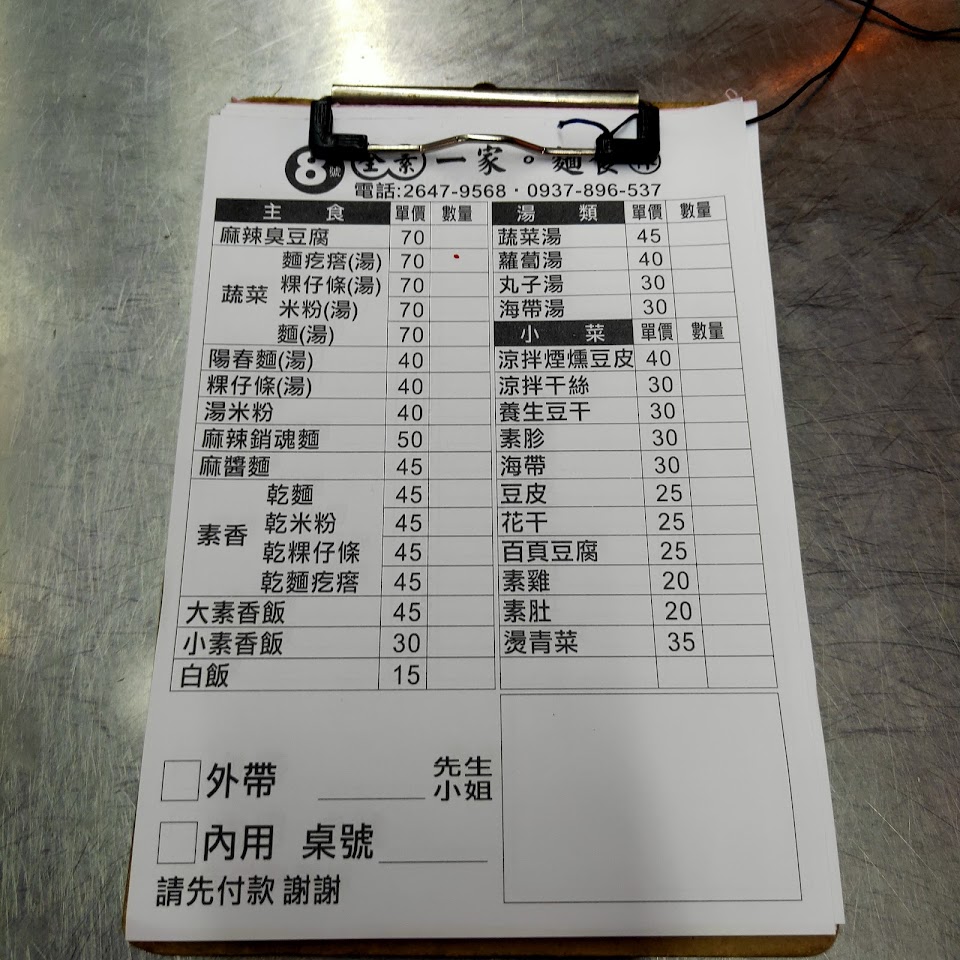 8號 全素 一家。麵食
電話:2647-9568．0937-896-537
主食 單價 數量
麻辣臭豆腐 70
蔬菜
麵疙瘩(湯) 70
粿仔條(湯) 70
米粉(湯) 70
麵(湯) 70
陽春麵(湯) 40
粿仔條(湯) 40
湯米粉 40
麻辣銷魂麵 50
麻醬麵 45
素香
乾麵 45
乾米粉 45
乾粿仔條 45
乾麵疙瘩 45
大素香飯 45
小素香飯 30
白飯 15
湯類 單價 數量
蔬菜湯 45
蘿蔔湯 40
丸子湯 30
海帶湯 30
小菜 單價 數量
涼拌煙燻豆皮 40
涼拌干絲 30
養生豆干 30
素胗 30
海帶 30
豆皮 25
花干 25
百頁豆腐 25
素雞 20
素肚 20
燙青菜 35
外帶 先生
小姐
內用 桌號
請先付款 謝謝